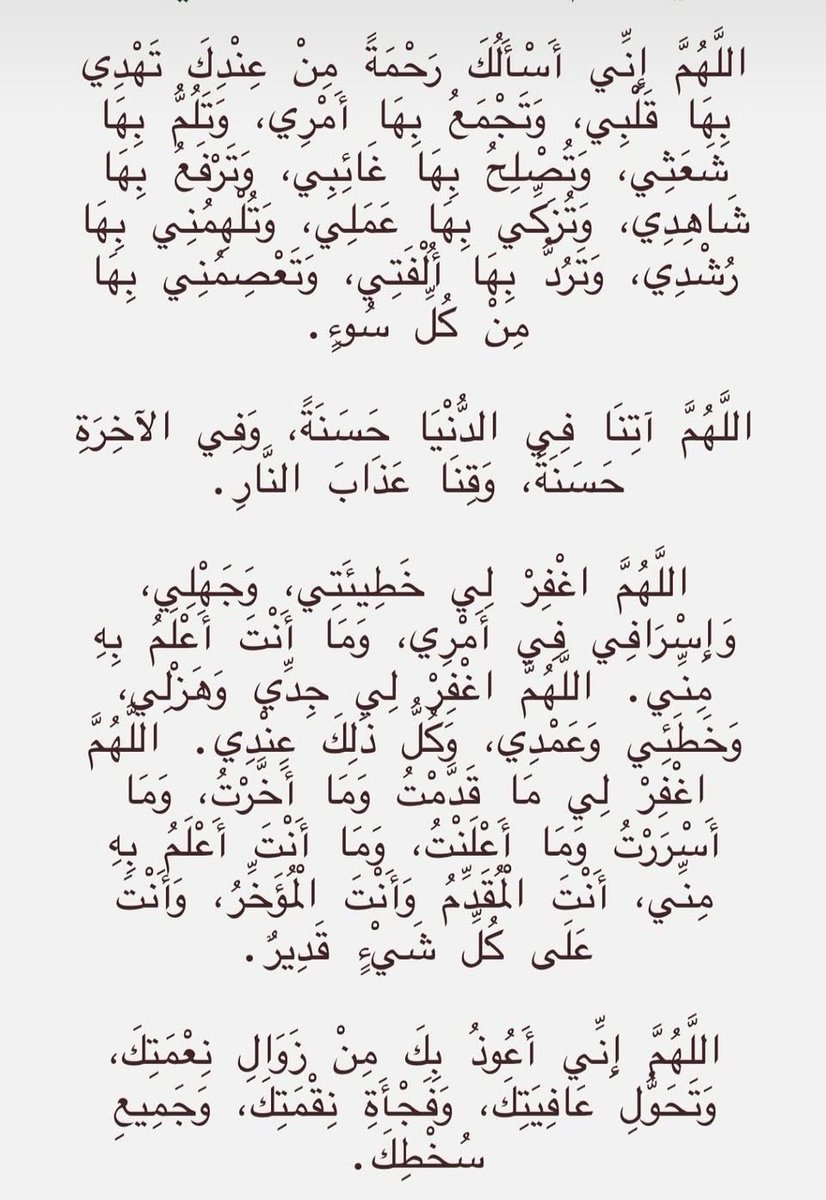 اللَّهُمَّ إِنِّي أَسْأَلُكَ رَحْمَةً مِنْ عِنْدِكَ تَهْدِي
بِهَا قَلْبِي، وَتَجْمَعُ بِهَا أَمْرِي، وَتَلُمُّ بِهَا
شَعَثِي، وَتُصْلِحُ بِهَا غَائِبِي، وَتَرْفَعُ بِهَا
شَاهِدِي، وَتُزَكِّي بِهَا عَمَلِي، وَتُلْهِمُنِي بِهَا
رُشْدِي، وَتَرُدُّ بِهَا أُلْفَتِي، وَتَعْصِمُنِي بِهَا
مِنْ كُلِّ سُوءٍ.
اللَّهُمَّ آتِنَا فِي الدُّنْيَا حَسَنَةً، وَفِي الآخِرَةِ
حَسَنَةً، وَقِنَا عَذَابَ النَّارِ.
اللَّهُمَّ اغْفِرْ لِي خَطِيئَتِي، وَجَهْلِي،
وَإِسْرَافِي فِي أَمْرِي، وَمَا أَنْتَ أَعْلَمُ بِهِ
مِنِّي. اللَّهُمَّ اغْفِرْ لِي جِدِّي وَهَزْلِي،
وَخَطَئِي وَعَمْدِي، وَكُلُّ ذَلِكَ عِنْدِي. اللَّهُمَّ
اغْفِرْ لِي مَا قَدَّمْتُ وَمَا أَخَّرْتُ، وَمَا
أَسْرَرْتُ وَمَا أَعْلَنْتُ، وَمَا أَنْتَ أَعْلَمُ بِهِ
مِنِّي، أَنْتَ الْمُقَدِّمُ وَأَنْتَ الْمُؤَخِّرُ، وَأَنْتَ
عَلَى كُلِّ شَيْءٍ قَدِيرٌ.
اللَّهُمَّ إِنِّي أَعُوذُ بِكَ مِنْ زَوَالِ نِعْمَتِكَ،
وَتَحَوُّلِ عَافِيَتِكَ، وَفَجْأَةِ نِقْمَتِكَ، وَجَمِيعِ
سُخْطِكَ.